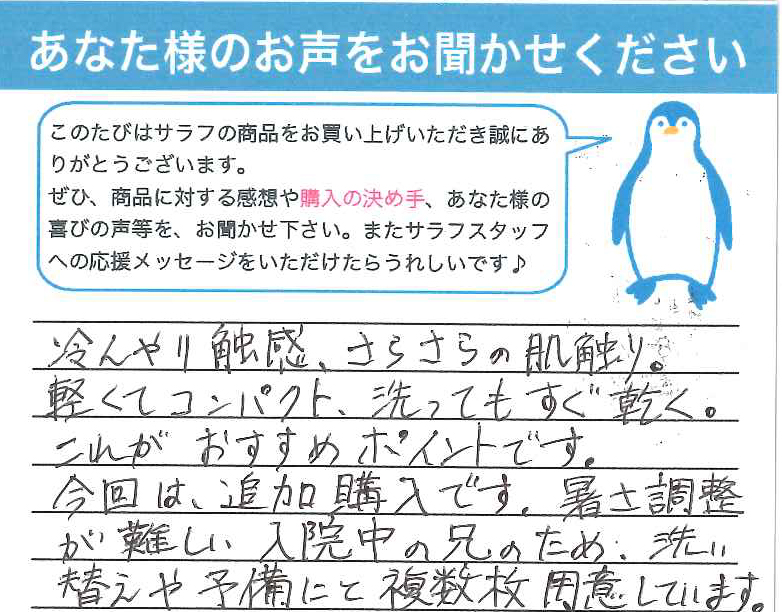 あなた様のお声をお聞かせください
このたびはサラフの商品をお買い上げいただき誠にあ
りがとうございます。
ぜひ、商品に対する感想や購入の決め手、あなた様の
喜びの声等を、お聞かせ下さい。またサラフスタッフ
への応援メッセージをいただけたらうれしいです♪
冷んやり触感、さらさらの肌触り。
軽くてコンパクト、洗ってもすぐ乾く。
これがおすすめポイントです。
今回は、追加購入です。暑さ調整
が難しい入院中の兄のため、洗い
替えや予備にと複数枚用意しています。